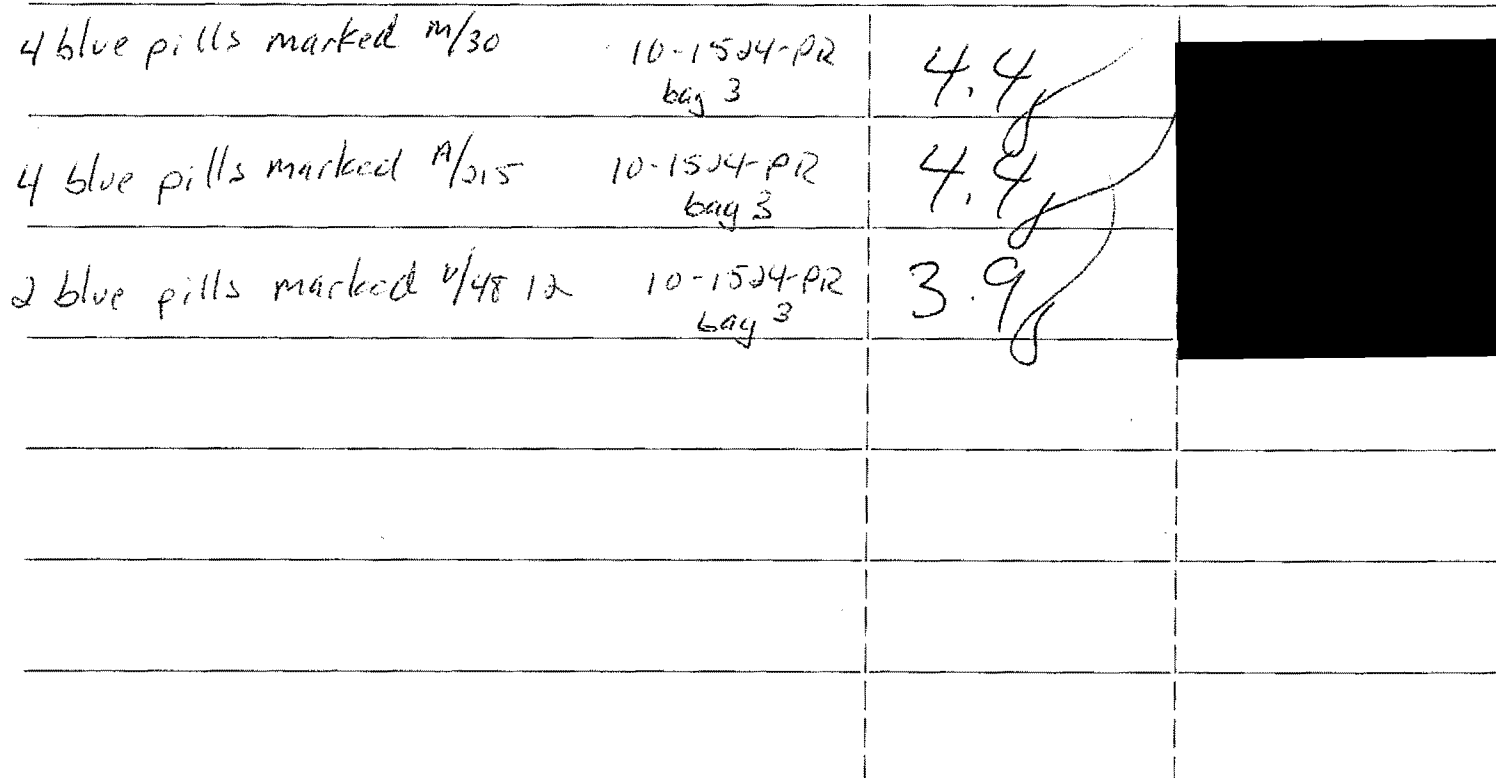 4 blue pills marked M/30 10-1524-PR 4.4g
bag 3
4 blue pills marked A/215 10-1524-PR 4.4g
bag 3
2 blue pills marked V/48 12 10-1524-PR 3.9g
bag 3